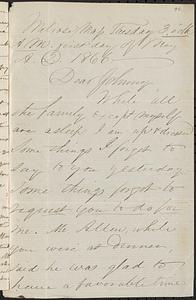 Melrose Mass Tuesday 3, o'clk
A.M. first day of May
A D 1866.
Dear Johnny
While all
the family except myself
are asleep I am up &
some things I forgot to
say to you yesterday
Some things forgot to
request you to do for
me. Mr Allen, while
you were at dinner
said he was glad to
have a favorable time